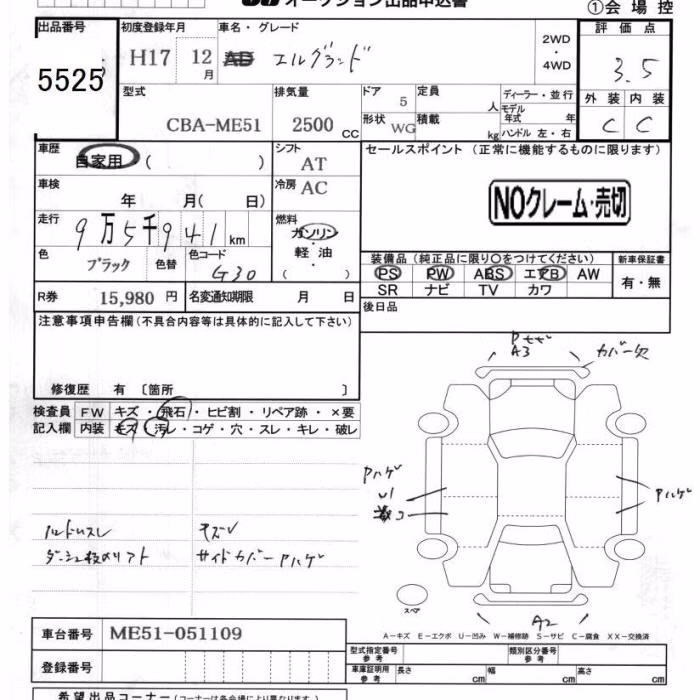 オークション出品申込書
①会場控
出品番号 初度登録年月 車名・グレード 2WD ・ 4WD 評価点
5525 H17 12月 エルグランド 3.5
型式 排気量 ドア 5 定員 人 ディーラー・並行 外装 内装
CBA-ME51 2500CC 形状 WG 積載 kg モデル年式 年 C C
ハンドル 左・右
車歴 自家用 ( ) シフト AT セールスポイント (正常に機能するものに限ります)
車検 年 月( 日) 冷房 AC
NOクレーム・売切
走行 9万5千941km 燃料 ガソリン 軽油 ( )
色 ブラック 色替 色コード G30
装備品(純正品に限り○をつけてください) 新車保証書
PS PW ABS エアB AW 有・無
SR ナビ TV カワ
R券 15,980円 名変通知期限 月 日 後日品
注意事項申告欄(不具合内容等は具体的に記入して下さい)
修復歴 有 〔箇所 〕
検査員 FW キズ・飛石・ヒビ割・リペア跡・×要
記入欄 内装 キズ・汚レ・コゲ・穴・スレ・キレ・破レ
A3 カバー欠
Pハゲ
U1
Pハゲ
ハンドルスレ キズU
サイドカバーPハゲ
スペア
A2
A-キズ E-エクボ U-凹み W-補修跡 S-サビ C-腐食 XX-交換済
車台番号 ME51-051109
登録番号
型式指定番号 参考 類別区分番号 参考
車庫証明用 参考 長さ cm 幅 cm 高さ cm
希望出品コーナー(コーナーは各会場により異なります)